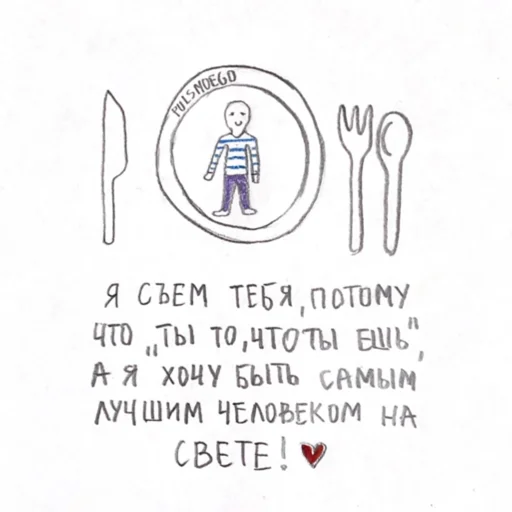 PULSNOEGO
Я СЪЕМ ТЕБЯ, ПОТОМУ
ЧТО „ТЫ ТО, ЧТО ТЫ ЕШЬ",
А Я ХОЧУ БЫТЬ САМЫМ
ЛУЧШИМ ЧЕЛОВЕКОМ НА
СВЕТЕ! ♥